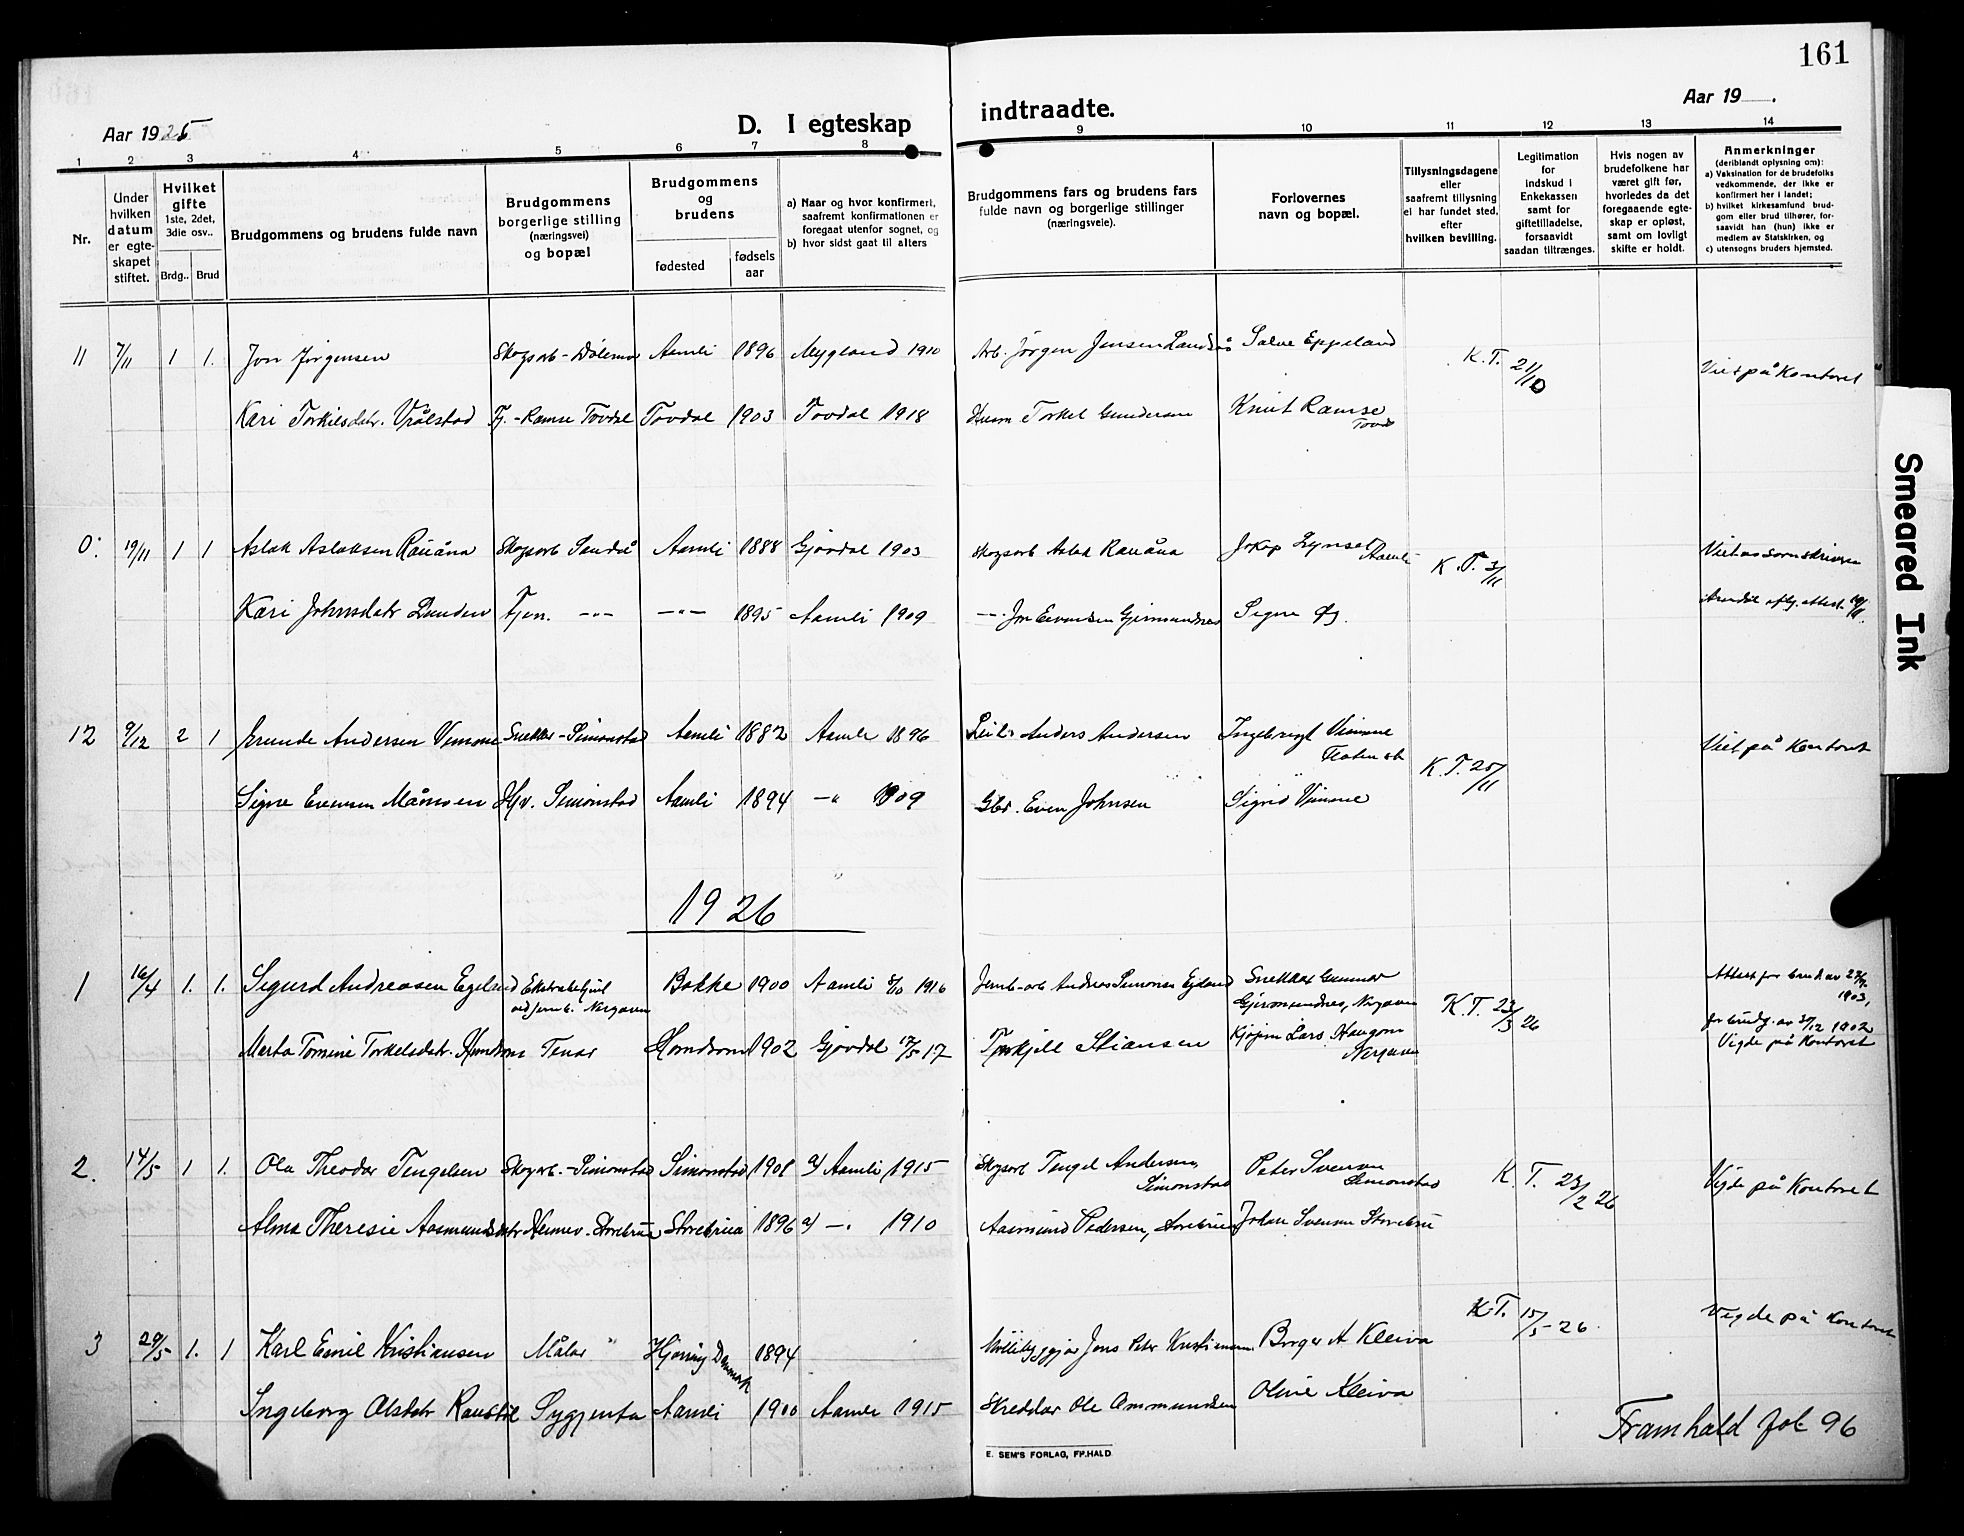 161
Aar 1925
D. I egteskap
indtraadte.
Aar 19 .
1 2 3 4 5 6 7 8 9 10 11 12 13 14
Nr.
Under hvilken datum er egteskapet stiftet.
Hvilket gifte 1ste, 2det, 3die osv..
Brdg.. Brud
Brudgommens og brudens fulde navn
Brudgommens borgerlige stilling (næringsvei) og bopæl
Brudgommens og brudens
fødested
fødsels aar
a) Naar og hvor konfirmert, saafremt konfirmationen er foregaat utenfor sognet, og
b) hvor sidst gaat til alters
Brudgommens fars og brudens fars fulde navn og borgerlige stillinger (næringsveie).
Forlovernes navn og bopæl.
Tillysningsdagene eller saafremt tillysning ei har fundet sted, efter hvilken bevilling.
Legitimation for indskud i Enkekassen samt for giftetilladelse, forsaavidt saadan tiltrænges.
Hvis nogen av brudefolkene har været gift før, hvorledes da det foregaaende egteskap er opløst, samt om lovligt skifte er holdt.
Anmerkninger
(deriblandt oplysning om):
a) Vaksination for de brudefolks vedkommende, der ikke er konfirmert her i landet;
b) hvilket kirkesamfund brudgom eller brud tilhører, forsaavidt han (hun) ikke er medlem av Statskirken, og
c) utensogns bruders hjemsted.
11 7/11 1 1. Jon Jørgensen Skogsarb-Dölemo Aamli 1896 Mygland 1910 Arb. Jörgen Jensen Salve Eppeland K.T. 21/10 Viet på Kontoret
Kari Torkilsdatr. Vrålstad Tj.-Ramse Tovdal Tovdal 1903 Tovdal 1918 Husm Torkel Gundersen Knut Ramse Tovd
0. 19/11 1 1 Aslak Aslaksen Rauåna Skogsarb Aamli 1888 Gjövdal 1903 Skogsarb Aslak Rauåna Aamli K.T. 3/11
Kari Johnsdatr Lunden Tjen. -"- -"- 1895 Aamli 1909 Signe Øy.
12 9/12 2 1 Andersen Vimme Snekker-Simonstad Aamli 1882 Aamli 1896 Anders Andersen Ingebrigt Vimme K.T. 25/11 Viet på Kontoret
Signe Evensen Hv. Simonstad Aamli 1894 -" 1909 Gbr. Even Johnsen Sigrid Vimme
1926
1 16/4 1. 1. Sigurd Andreasen Egeland Bakke 1900 Aamli 8/10 1916 Snekker Gunnar K.T. 23/3 26 Attest for brud av 27/9 1903,
Marta Tomine Torkelsdatr. Tenar 1902 Gjövdal 17/5 17 Stiansen Lars Haugom for brudg. av 30/12 1902
Vigde på Kontoret
2. 14/5 1 1. Ola Theodor Tengelsen Skogsarb.-Simonstad Simonstad 1901 a) Aamli 1915 Skogsarb Tengel Andersen, Simonstad Peter Svensen Simonstad K.T. 23/2 26 Vigde på Kontoret
Alma Theresie Aasmundsdatr Heimev. Storebrua Storebrua 1896 a) -. 1910 Aasmund Pedersen, Storebrua Johan Svensen Storebru
3 29/5 1. 1 Karl Emil Kristiansen Målar Hjörring Danmark 1894 Jens Peter Kristiansen Borger A Kleiva K.T. 15/5-26. Vigde på Kontoret
Ingeborg Olsdatr Sygjenta Aamli 1900 Aamli 1915 Skreddar Ole Ommundsen Oline Kleiva
Framhald fol 96
E. SEM'S FORLAG, FR.HALD
Smeared Ink